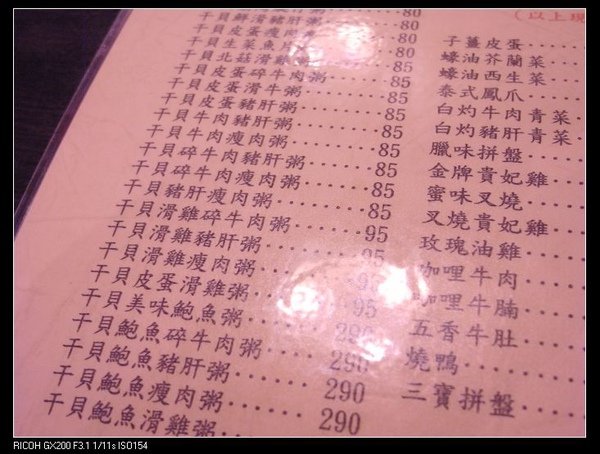 干貝鮮滑豬肝粥 80
干貝皮蛋瘦肉粥 80
干貝生菜魚 80
干貝北菇滑雞 85
干貝皮蛋碎牛肉粥 85
干貝皮蛋滑牛粥 85
干貝皮蛋豬肝粥 85
干貝牛肉豬肝粥 85
干貝牛肉瘦肉粥 85
干貝碎牛肉豬肝粥 85
干貝碎牛肉瘦肉粥 85
干貝豬肝瘦肉粥 85
干貝滑雞碎牛肉粥 95
干貝滑雞豬肝粥 95
干貝滑雞瘦肉粥 95
干貝皮蛋滑雞粥 95
干貝美味鮑魚粥 290
干貝鮑魚碎牛肉粥 290
干貝鮑魚豬肝粥 290
干貝鮑魚瘦肉粥 290
干貝鮑魚滑雞粥
(以上現
子薑皮蛋
蠔油芥蘭菜
蠔油西生菜
泰式鳳爪
白灼牛肉青菜
白灼豬肝青菜
臘味拼盤
金牌貴妃雞
蜜味叉燒
叉燒貴妃雞
玫瑰油雞
咖哩牛肉
咖哩牛腩
五香牛肚
燒鴨
三寶拼盤
RICOH GX200 F3.1 1/11s ISO154